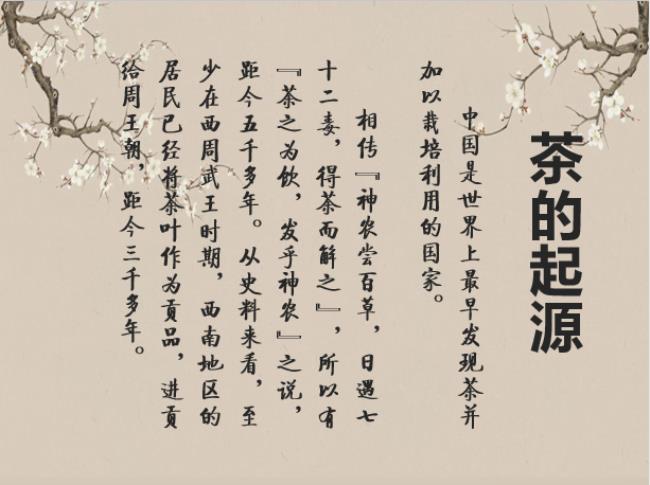 茶的起源
中国是世界上最早发现茶并
加以栽培利用的国家。
相传『神农尝百草，日遇七
十二毒，得茶而解之』，所以有
『茶之为饮，发乎神农』之说，
距今五千多年。从史料来看，至
少在西周武王时期，西南地区的
居民已经将茶叶作为贡品，进贡
给周王朝，距今三千多年。